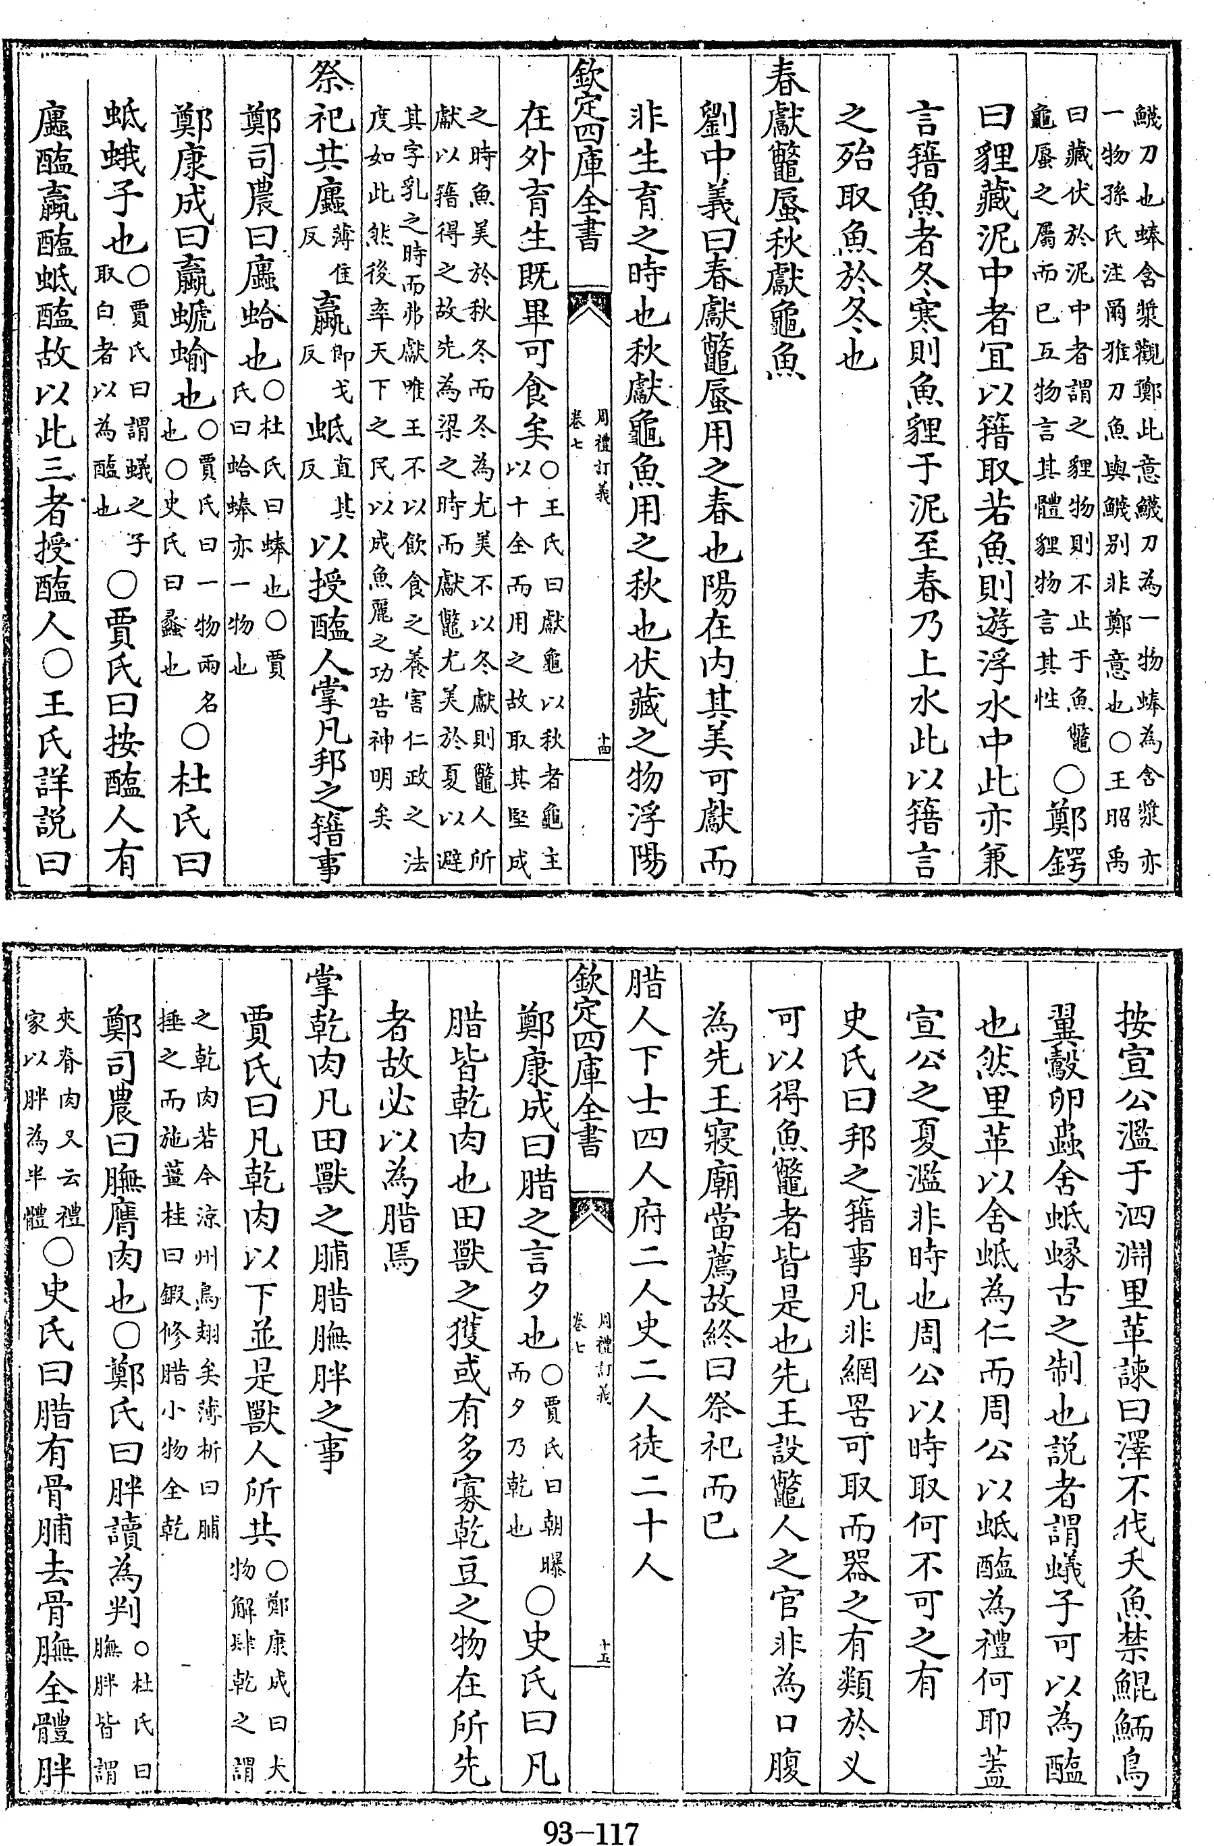 鱴刀也蜯含漿觀鄭此意鱴刀為一物蜯為含漿亦
一物孫氏注爾雅刀魚與鱴别非鄭意也○王昭禹
曰藏伏於泥中者謂之貍物則不止于魚鼈
龜蜃之屬而已互物言其體貍物言其性○鄭鍔
曰貍藏泥中者宜以籍取若魚則遊浮水中此亦兼
言籍魚者冬寒則魚貍于泥至春乃上水此以籍言
之殆取魚於冬也
春獻鼈蜃秋獻龜魚
劉中義曰春獻鼈蜃用之春也陽在内其美可獻而
非生育之時也秋獻龜魚用之秋也伏藏之物浮陽
欽定四庫全書 周禮訂義 卷七 十四
在外育生既畢可食矣○王氏曰獻龜以秋者龜主以十全而用之故取其堅成
之時魚美於秋冬而冬為尤美不以冬獻則鼈人所
獻以籍得之故先為梁之時而獻鼈尤美於夏以避
其字乳之時而弗獻唯王不以飲食之養害仁政之法
度如此然後率天下之民以成魚麗之功告神明矣
祭祀共蠯薄隹反蠃即戈反蚳直其反以授醢人掌凡邦之籍事
鄭司農曰蠯蛤也○杜氏曰蜯也○賈氏曰蛤蜯亦一物也
鄭康成曰蠃螔蝓也○賈氏曰一物兩名也○史氏曰蠡也○杜氏曰
蚳蛾子也○賈氏曰謂蟻之子取白者以為醢也○賈氏曰按醢人有
蠯醢蠃醢蚳醢故以此三者授醢人○王氏詳説曰
按宣公濫于泗淵里革諫曰澤不伐夭魚禁鯤鮞鳥
翼鷇卵蟲舍蚳蝝古之制也説者謂蟻子可以為醢
也然里革以舍蚳為仁而周公以蚳醢為禮何耶蓋
宣公之夏濫非時也周公以時取何不可之有
史氏曰邦之籍事凡非網罟可取而器之有類於义
可以得魚鼈者皆是也先王設鼈人之官非為口腹
為先王寢廟當薦故終曰祭祀而已
腊人下士四人府二人史二人徒二十人
欽定四庫全書 周禮訂義 卷七 十五
鄭康成曰腊之言夕也○賈氏曰朝曝而夕乃乾也○史氏曰凡
腊皆乾肉也田獸之獲或有多寡乾豆之物在所先
者故必以為腊焉
掌乾肉凡田獸之脯腊膴胖之事
賈氏曰凡乾肉以下並是獸人所共○鄭康成曰大物解肆乾之謂
之乾肉若今涼州烏翅矣薄析曰脯
捶之而施薑桂曰鍜修腊小物全乾
鄭司農曰膴膺肉也○鄭氏曰胖讀為判○杜氏曰膴胖皆謂
夾脊肉又云禮家以胖為半體○史氏曰腊有骨脯去骨膴全體胖
93-117